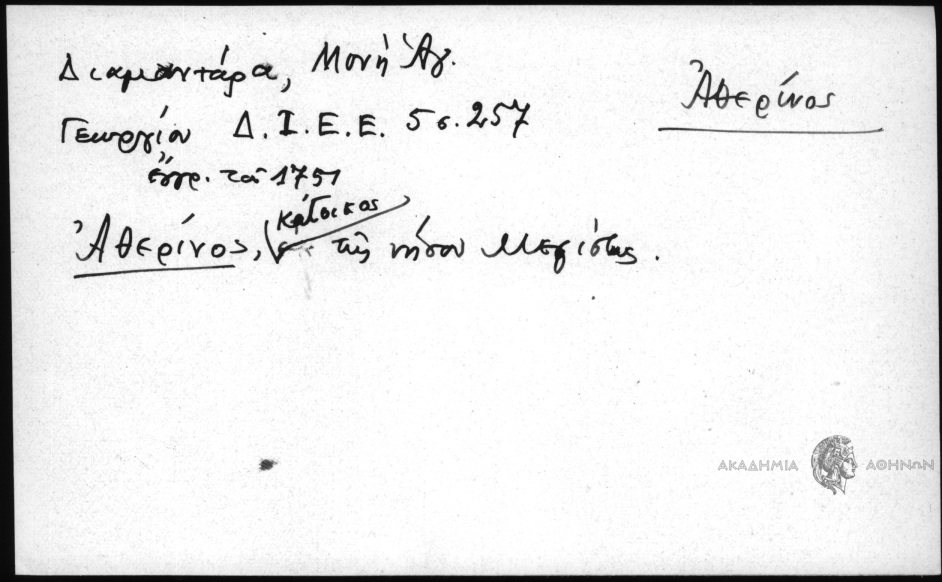 Διαμαντάρα, Μονὴ Ἁγ.
Γεωργίου Δ.Ι.Ε.Ε. 5 σ. 257
ἔγγρ. τοῦ 1751
Ἀθερίνος
κάτοικος
Ἀθερίνος, τῆς νήσου Μεγίστης.
ΑΚΑΔΗΜΙΑ ΑΘΗΝΩΝ